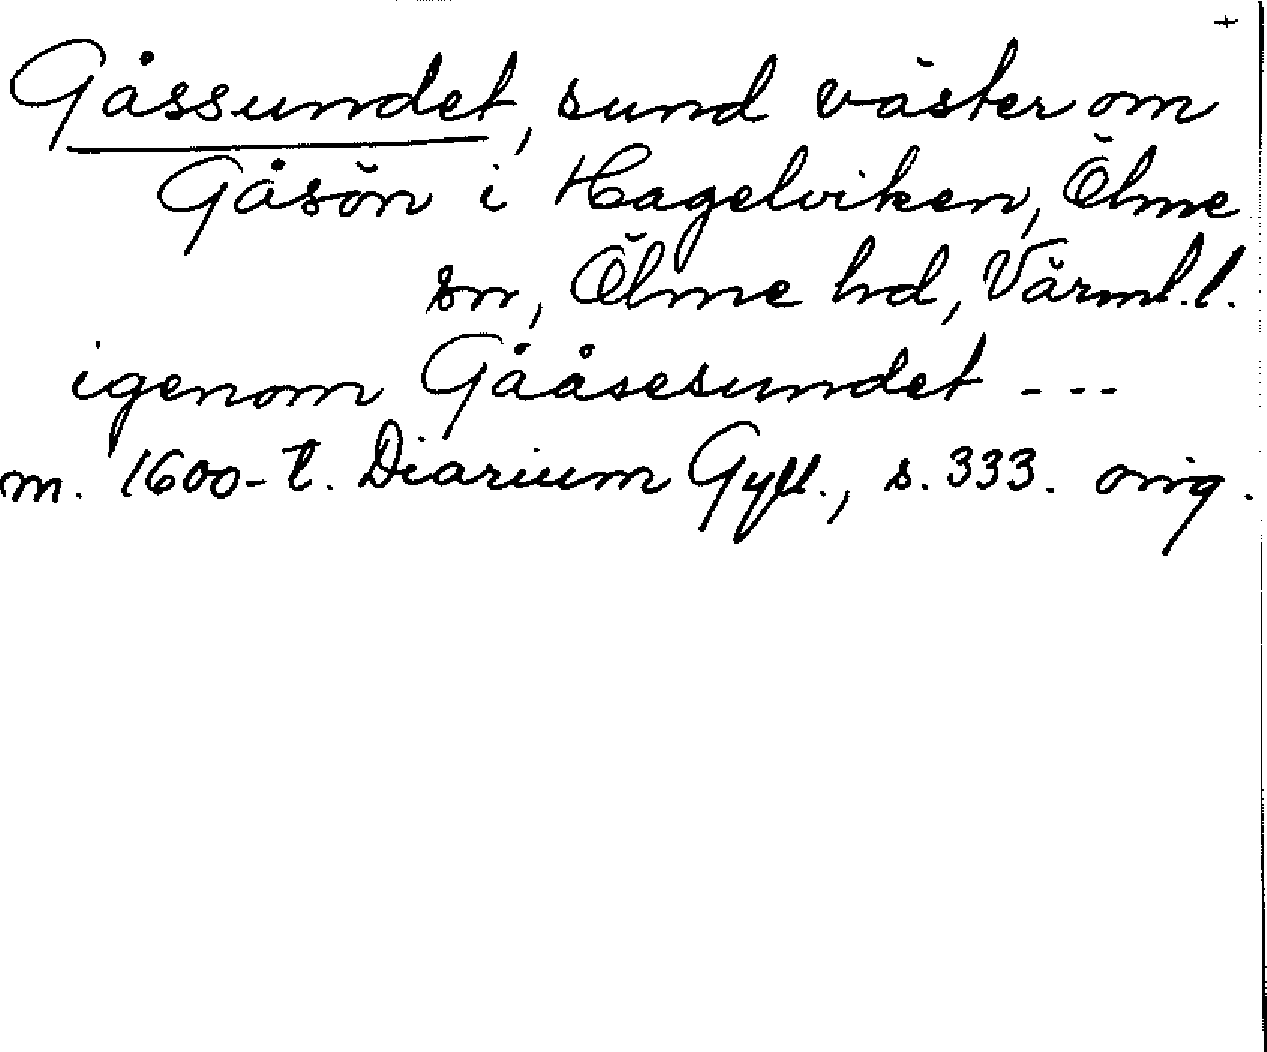 Gåssundet, sund väster om
Gåsön i Hagelviken, Ölme
sn, Ölme hd, Värml. l.
igenom Gååsesundet ---
m. 1600-t. Diarium Gyll., s. 333. orig.